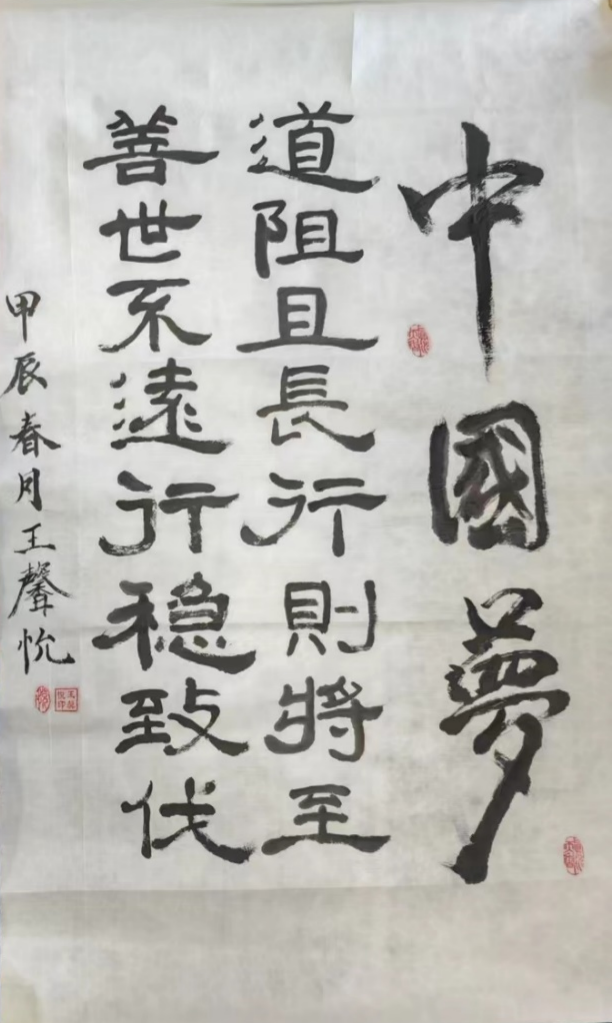 中國夢
道阻且長行則將至
善世不遠行稳致伐
甲辰春月王馨悦